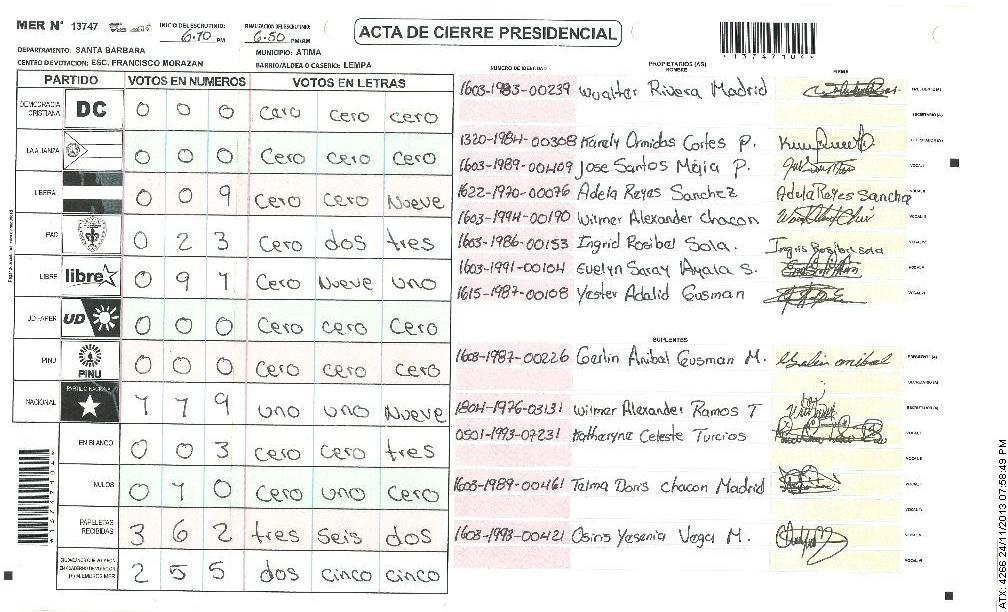 MER N° 13747
INICIO DEL ESCRUTINIO: 6:10 PM
FINALIZACION DEL ESCRUTINIO: 6:50 PM
ACTA DE CIERRE PRESIDENCIAL
137471044
DEPARTAMENTO: SANTA BARBARA
MUNICIPIO: ATIMA
CENTRO DE VOTACION: ESC. FRANCISCO MORAZAN
BARRIO/ALDEA O CASERIO: LEMPA
PARTIDO VOTOS EN NUMEROS VOTOS EN LETRAS
DEMOCRACIA CRISTIANA DC 0 0 0 cero cero cero
LA ALIANZA 0 0 0 Cero cero cero
LIBERAL 0 0 9 Cero Cero Nueve
PAC 0 2 3 Cero dos tres
LIBRE libre 0 9 1 Cero Nueve uno
UD-FAPER UD 0 0 0 Cero cero Cero
PINU PINU 0 0 0 Cero cero cero
NACIONAL PARTIDO NACIONAL 1 1 9 uno uno Nueve
EN BLANCO 0 0 3 cero cero tres
NULOS 0 1 0 cero uno Cero
PAPELETAS RECIBIDAS 3 6 2 tres seis dos
2 5 5 dos cinco cinco
NUMERO DE IDENTIDAD PROPIETARIOS (AS) NOMBRE FIRMA
1603-1983-00239 Wualter Rivera Madrid PRESIDENTE (A)
SECRETARIO (A)
1320-1984-00308 Karely Ormidas Cortes P.
1603-1989-00409 Jose Santos Mejia P. VOCAL I
1622-1970-00076 Adela Reyes Sanchez Adela Reyes Sanchez VOCAL II
1603-1994-00190 Wilmer Alexander chacon VOCAL III
1603-1986-00153 Ingrid Rosibel Sola. Ingris Rosibel sola VOCAL IV
1603-1991-00104 Evelyn Saray Ayala S. VOCAL V
1615-1987-00108 Yester Adalid Gusman VOCAL VI
SUPLENTES
1603-1987-00226 Gerlin Anibal Gusman M. PRESIDENTE (A)
SECRETARIO (A)
1804-1976-03131 Wilmer Alexander Ramos T ESCRUTADOR (A)
0501-1993-07231 Katheryne Celeste Turcios VOCAL I
VOCAL II
1603-1989-00461 Telma Doris chacon Madrid
1603-1993-00421 Osiris Yesenia Vega M. VOCAL V
VOCAL VI
ATX: 4266 24/11/2013 07:58:49 PM